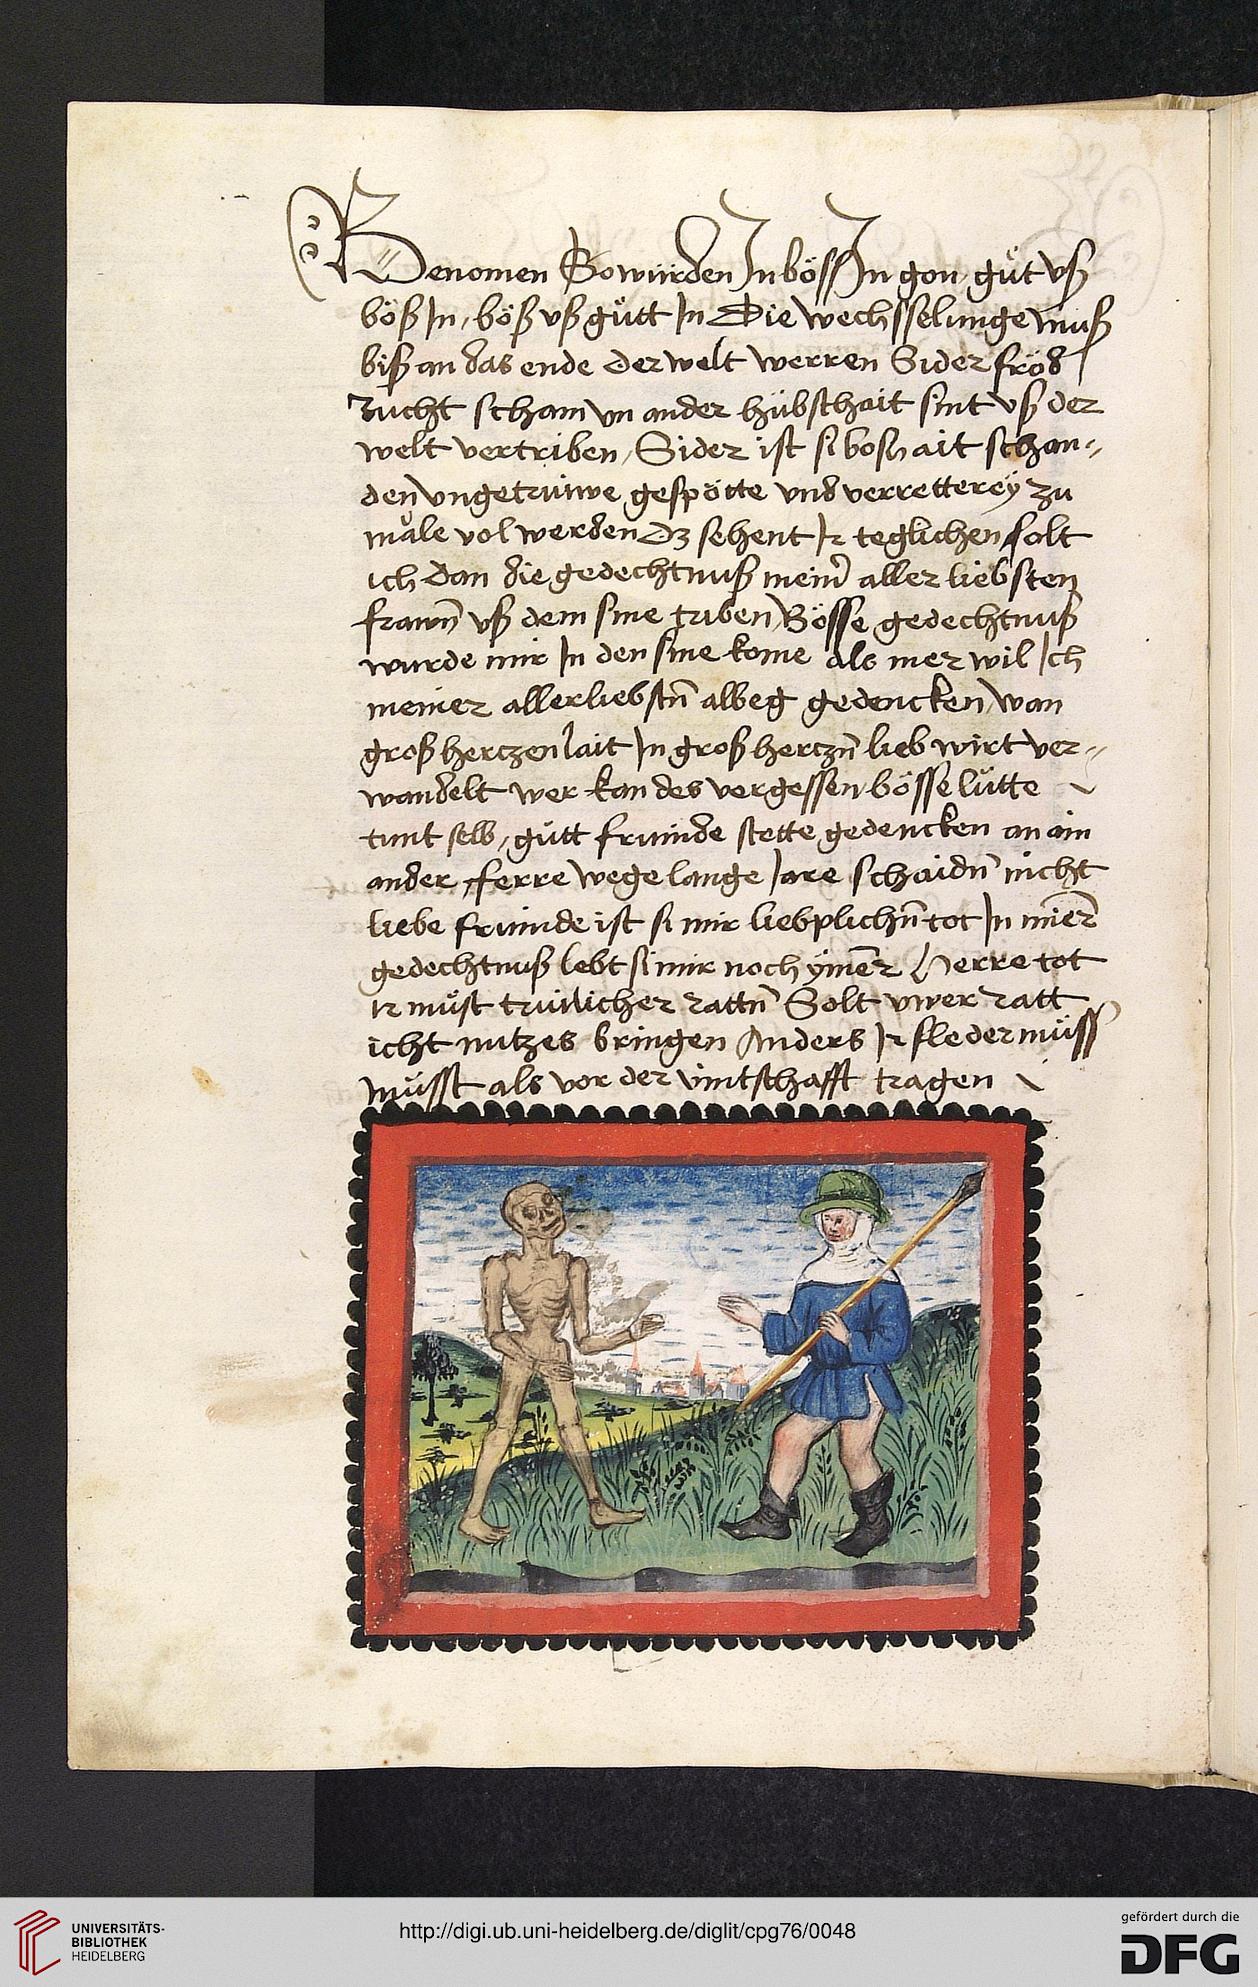 Benomen So würden In böss In gon güt vß
böß In / böß vß gütt In Die wechsselunge muß
biß an das ende der welt werren Sider fröd
zucht scham vn ander hübschait sint vß der
welt vertriben / Sider ist si boshait schan-
den vngetrüwe gespötte vnd verretterey zu
male vol werden Dz sehent Ir teglichen solt
ich dan die gedechtnuß meiner aller liebsten
frawn̄ vß dem sine triben Bösse gedechtnuß
wurde mir In den sine kome als mer wil Ich
meiner allerliebstn̄ albeg gedencken wan
groß herczen lait In groß herczn̄ lieb wirt ver-
wandelt wer kan des vergessen bösse lütte
tunt selb / gütt fruinde stette gedencken an ain
ander ferre wege lange Jare schaidn̄ nicht
liebe fruinde ist si mir lieblichn̄ tot In mīer
gedechtnuß lebt si mir noch ymēr Herre tot
ir müst trülicher rattn̄ Solt vwer ratt
icht nutzes bringen Anders Ir fledermüss
müsst als vor der vintschafft tragen
UNIVERSITÄTS-
BIBLIOTHEK
HEIDELBERG
http://digi.ub.uni-heidelberg.de/diglit/cpg76/0048
gefördert durch die
DFG